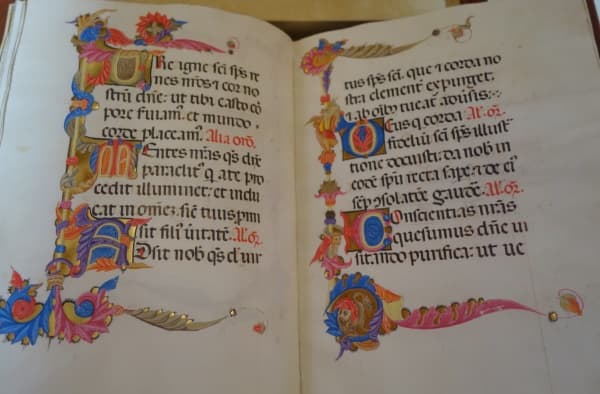 URe igne sc̄i sp̄s re
nes nr̄os & cor no
strū dn̄e: ut tibi casto cō
pore fuiam᷒. et mundo
corde placeam᷒. Alia or̄o.
MEntes nr̄as qs̄ dn̄e
paraclit᷒ q a te pro
cedit illuminet: et indu
cat in omēz. sic̄ tuus p̄mi
sit fili᷒ ūitatē. Al. or̄.
ADsit nob̄ qs̄ dn̄e uir
tus sp̄s sc̄i. que & corda no
stra clement᷒ expurget:
& ab oīb᷒ tueat᷒ aduersis:
DEus q corda Al. or̄.
fideliū sc̄i sp̄s illust
tione docuisti: da nob̄ in
eodē sp̄u recta sape: & de ei᷒
sēp ɔsolatōe gaudē. Al. or̄.
COnscientias nr̄as
quesumus dn̄e ui
sitando purifica: ut ue